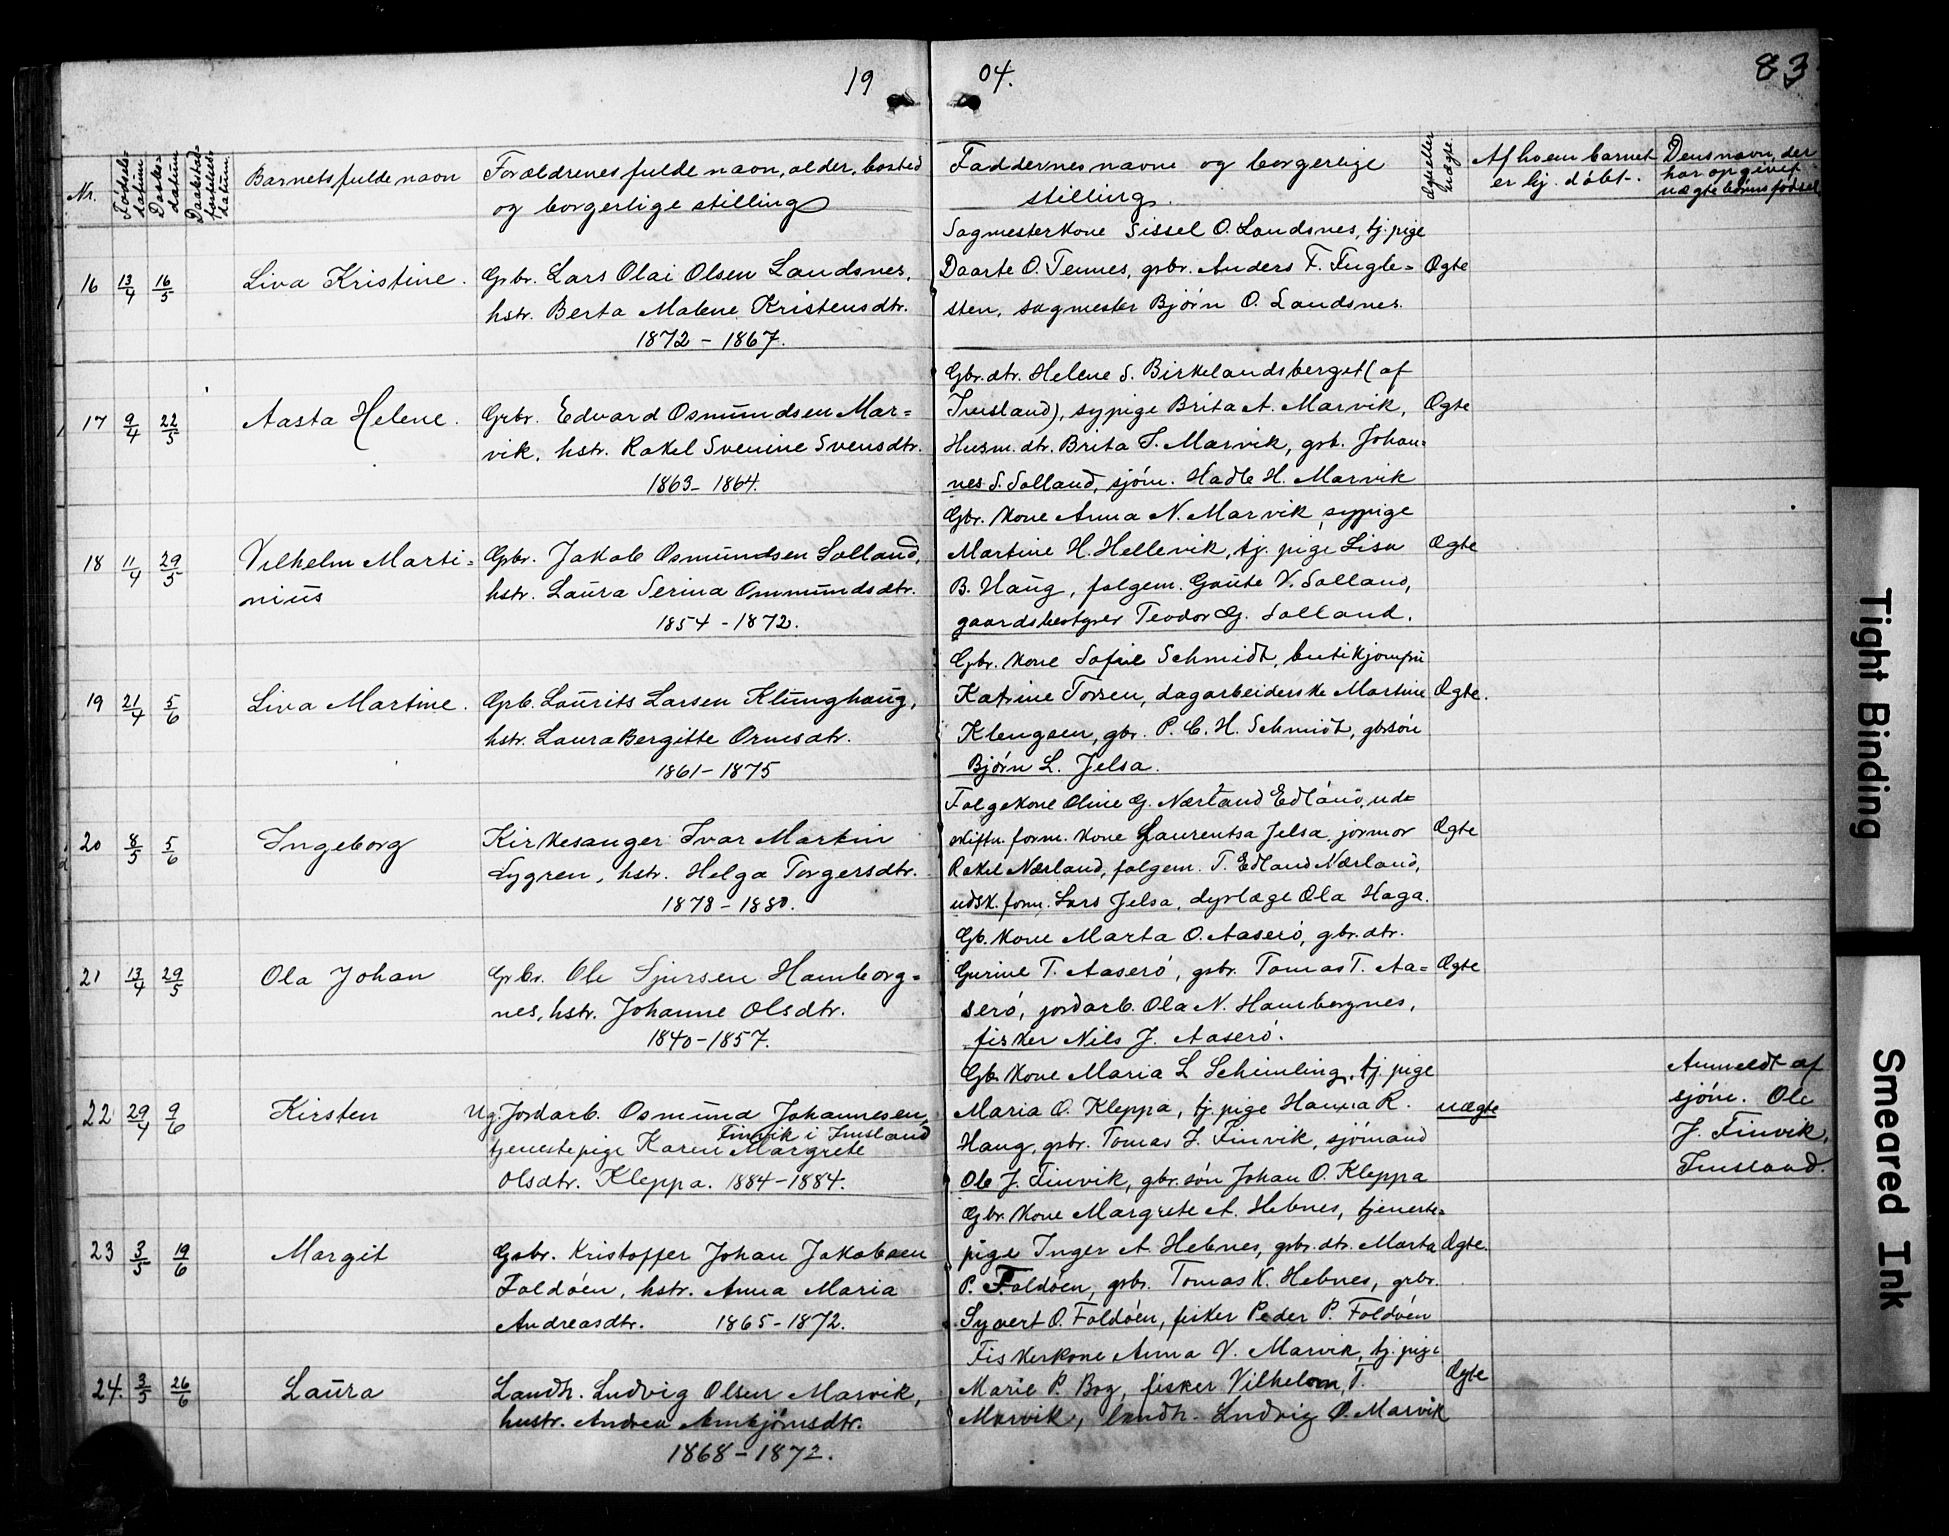 19 04. 83
Nr. Fødsels-datum Daabs-datum Barnets fulde navn Forældrenes fulde navn, alder, bosted Faddernes navne og borgerlige Ægte eller uægte. Af hvem barnet Dens navn, der
og borgerlige stilling stilling. er hj. døbt. har opgivet
uægte børns fødsel
Sagmesterkone Sissel O. Landsnes, tj. pige
16 13/4 16/5 Liva Kristine. Gbr. Lars Olai Olsen Landsnes, Daarte O. Tennes, gsbr. Anders F. Fugle= Ægte
hstr. Berta Malene Kristensdtr. sten, sagmester Bjørn O. Landsnes.
1872 - 1867.
Gbr. dtr. Helene S. Birkelandsberget (af
17 9/4 22/5 Aasta Helene. Gbr. Edvard Osmundsen Mar= Imsland), sypige Brita A. Marvik, Ægte
vik, hstr. Rakel Svenine Svensdtr. Husm. dtr. Brita S. Marvik, gsb. Johan=
1863 - 1864. nes S. Solland, sjøm. Hadle H. Marvik
Gbr. kone Anna N. Marvik, sypige
18 11/4 29/5 Vilhelm Marti= Gbr. Jakob Osmundsen Solland, Martine H. Hellevik, tj. pige Lisa Ægte
nius hstr. Laura Serina Ommundsdtr. B. Haug, følgem. Gaute V. Solland,
1854 - 1872. gaardsbestyrer Teodor G. Solland.
Gbr. kone Sofie Schmidt, butikjomfru
19 21/4 5/6 Liva Martine. Gbr. Laurits Larsen Klunghaug, Katrine Torsen, dagarbeiderske Martine Ægte.
hstr. Laura Bergitte Ormsdtr. Klengsen, gbr. P. C. H. Schmidt, gbrsøn
1861 - 1875 Bjørn L. Jelsa.
Følgekone Oline G. Nærland Edland, ud=
20 8/5 5/6 Ingeborg Kirkesanger Ivar Martin skiftn. form. kone Laurentsa Jelsa, jormor Ægte
Lygren, hstr. Helga Torgersdtr. Rakel Nærland, følgem. T. Edland Nærland,
1878 - 1880. udsk. form. Lars Jelsa, dyrlæge Ola Haga.
Gb. kone Marta O. Aaserø, gbr. dtr.
21 13/4 29/5 Ola Johan Gbr. Ole Sjursen Hamborg= Gurine T. Aaserø, gsbr. Tomas T. Aa= Ægte
nes, hstr. Johanne Olsdtr. serø, jordarb. Ola N. Hamborgnes,
1840 - 1857. fisker Nils J. Aaserø.
Gb. kone Maria L Scheimling, tj. pige Anmeldt af
22 29/4 9/6 Kirsten Ug. Jordarb. Osmund Johannesen, Maria O. Kleppa, tj. pige Hanna R. uægte sjøm. Ole
Finvik i Imsland
tjenestepige Karen Margrete Haug, gsbr. Tomas J. Finvik, sjømand J. Finvik,
Olsdtr. Kleppa. 1884 - 1884. Ole J. Finvik, gbr. søn Johan O. Kleppa Imsland.
Gbr. kone Margrete A. Hebnes, tjeneste=
23 3/5 19/6 Margit Gsbr. Kristoffer Johan Jakobsen pige Inger A. Hebnes, gsbr. dtr. Marta Ægte.
Foldøen, hstr. Anna Maria P. Foldøen, gsbr. Tomas K. Hebnes, gsbr.
Andreasdtr. 1865 - 1872. Syvert O. Foldøen, fisker Peder P. Foldøen
Fiskerkone Anna V. Marvik, tj. pige
24. 3/5 26/6 Laura Landh. Ludvig Olsen Marvik, Marie P. Bog, fisker Vilhelm T. Ægte
hustr. Andrea Arnbjørnsdtr. Marvik, landh. Ludvig O. Marvik
1868 - 1872.
Tight Binding
Smeared Ink